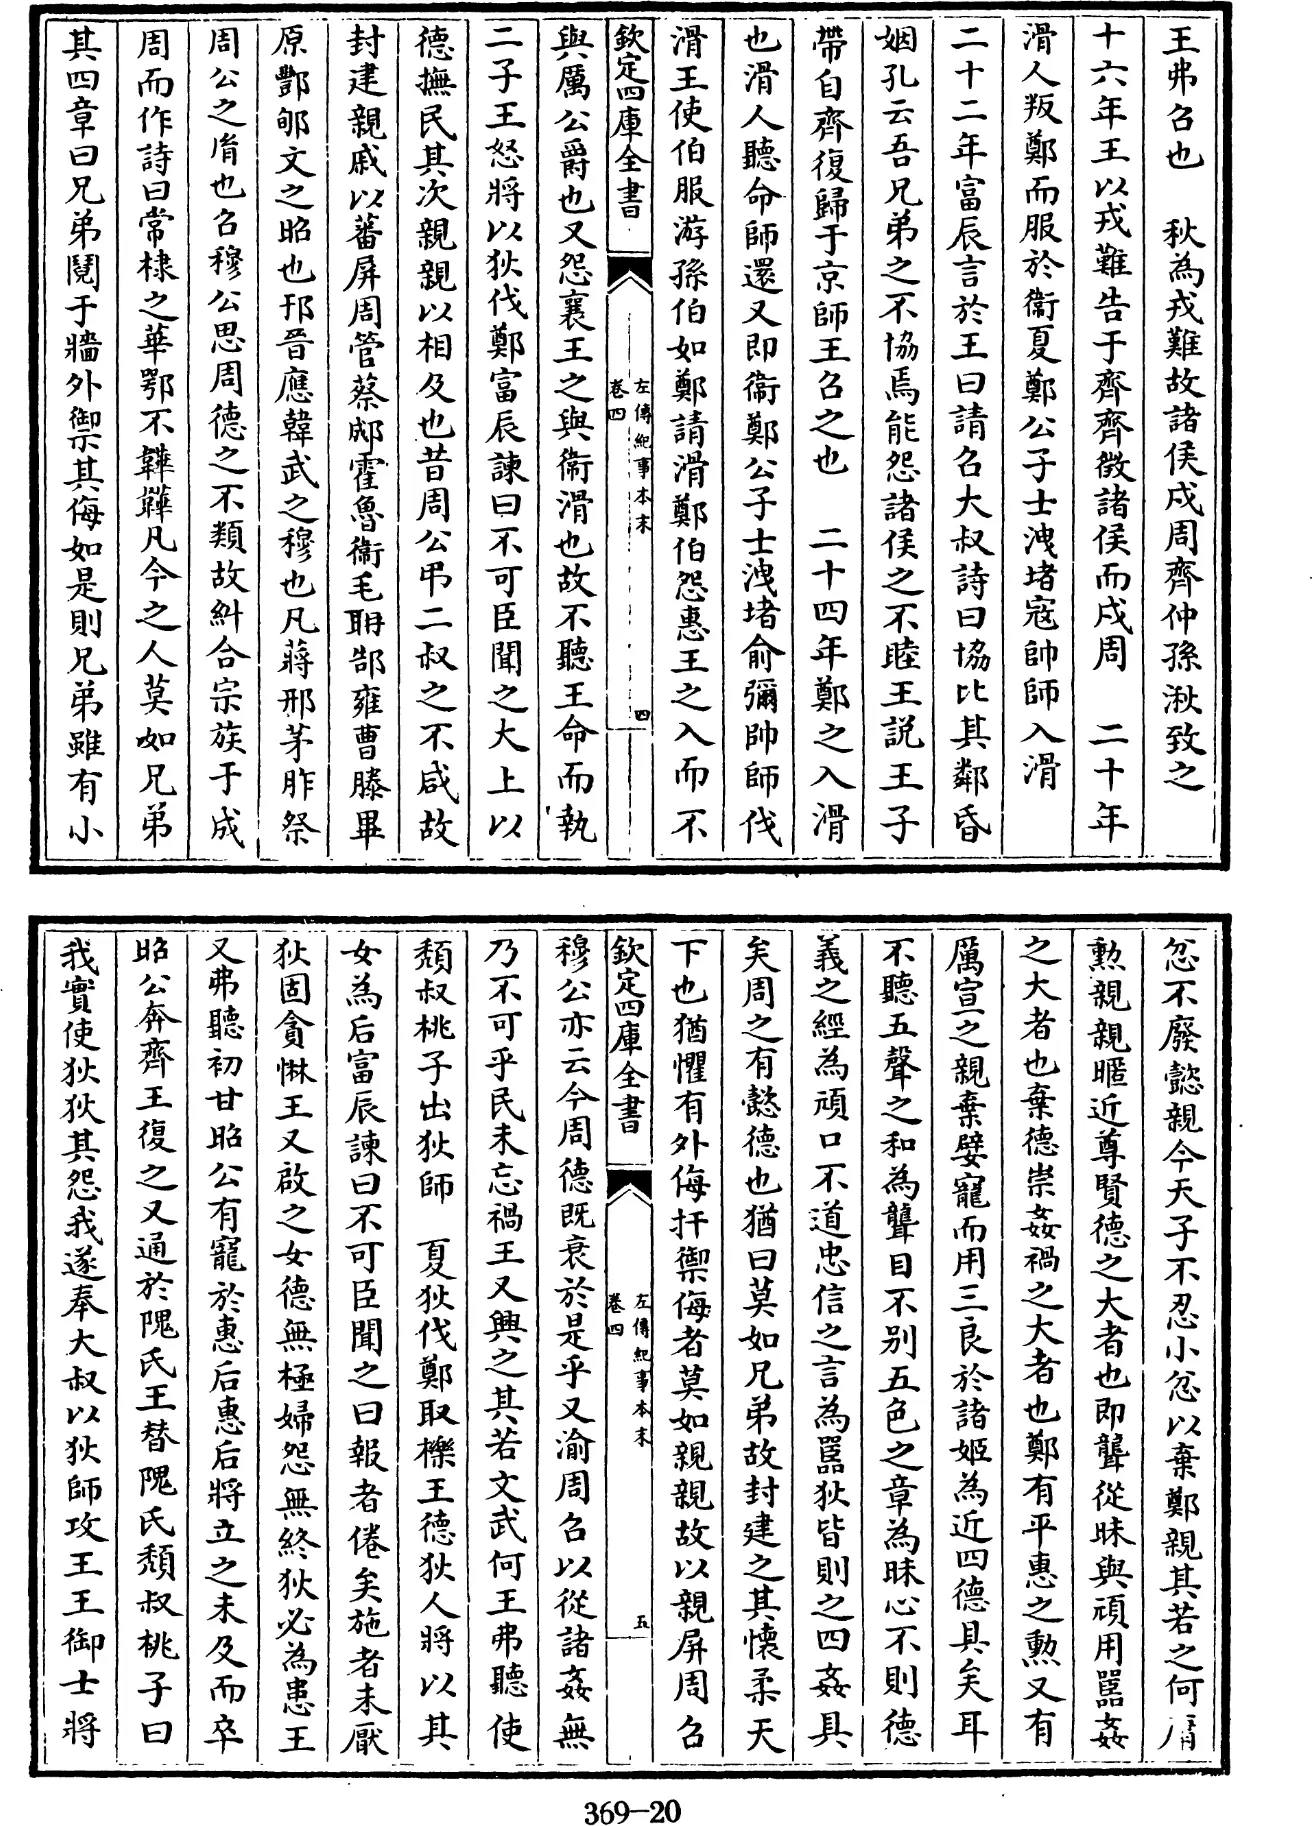 王弗召也　秋為戎難故諸侯戍周齊仲孫湫致之
十六年王以戎難告于齊齊徵諸侯而戍周　二十年
滑人叛鄭而服於衞夏鄭公子士洩堵寇帥師入滑
二十二年富辰言於王曰請召大叔詩曰協比其鄰昏
姻孔云吾兄弟之不協焉能怨諸侯之不睦王説王子
帶自齊復歸于京師王召之也　二十四年鄭之入滑
也滑人聽命師還又即衞鄭公子士洩堵俞彌帥師伐
滑王使伯服游孫伯如鄭請滑鄭伯怨惠王之入而不
欽定四庫全書
左傳紀事本末
卷四
四
與厲公爵也又怨襄王之與衞滑也故不聽王命而執
二子王怒將以狄伐鄭富辰諫曰不可臣聞之大上以
德撫民其次親親以相及也昔周公弔二叔之不咸故
封建親戚以蕃屏周管蔡郕霍魯衞毛聃郜雍曹滕畢
原酆郇文之昭也邗晉應韓武之穆也凡蔣邢茅胙祭
周公之胤也召穆公思周德之不類故糾合宗族于成
周而作詩曰常棣之華鄂不韡韡凡今之人莫如兄弟
其四章曰兄弟鬩于牆外禦其侮如是則兄弟雖有小
忿不廢懿親今天子不忍小忿以棄鄭親其若之何庸
勲親親暱近尊賢德之大者也即聾從昧與頑用嚚姦
之大者也棄德崇姦禍之大者也鄭有平惠之勲又有
厲宣之親棄嬖寵而用三良於諸姬為近四德具矣耳
不聽五聲之和為聾目不别五色之章為昧心不則德
義之經為頑口不道忠信之言為嚚狄皆則之四姦具
矣周之有懿德也猶曰莫如兄弟故封建之其懷柔天
下也猶懼有外侮扞禦侮者莫如親親故以親屏周召
欽定四庫全書
左傳紀事本末
卷四
五
穆公亦云今周德既衰於是乎又渝周召以從諸姦無
乃不可乎民未忘禍王又興之其若文武何王弗聽使
頽叔桃子出狄師　夏狄伐鄭取櫟王德狄人將以其
女為后富辰諫曰不可臣聞之曰報者倦矣施者未厭
狄固貪惏王又啟之女德無極婦怨無終狄必為患王
又弗聽初甘昭公有寵於惠后惠后將立之未及而卒
昭公奔齊王復之又通於隗氏王替隗氏頽叔桃子曰
我實使狄狄其怨我遂奉大叔以狄師攻王王御士將
369-20